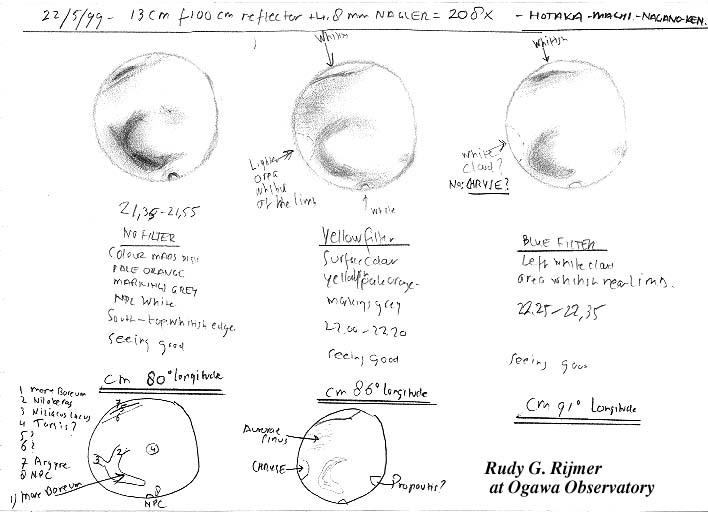 22/5/99 - 13cm f.100cm reflector +4.8mm NAGLER = 208X - HOTAKA-MACHI-NAGANO-KEN.
Whitish
Whitish
Lighter
area
whitish
at the limb
White
White
Cloud?
No: CHRYSE?
21,35-21,55
NO FILTER
Colour MARS disk
PALE ORANGE
MARKINGS GREY
NPC White
South-top whitish edge.
Seeing good
Yellow filter
Surface colour
yellowish pale orange-
markings grey
22.00-22.20
seeing good
BLUE FILTER
Left white cloud
area whitish near limb.
22.25-22,35
Seeing good
CM 80° longitude
CM 86° longitude
CM 91° Longitude
1 mare Boreum
2 Nilokeras
3 Niliacus Lacus
4 Tarsis?
5 ?
6 ?
7 Argyre
8 NPC
1) mare Boreum
7
6
3
2
4
8
NPC
Aurorae
Sinus
CHRYSE
Propontis?
Rudy G. Rijmer
at Ogawa Observatory